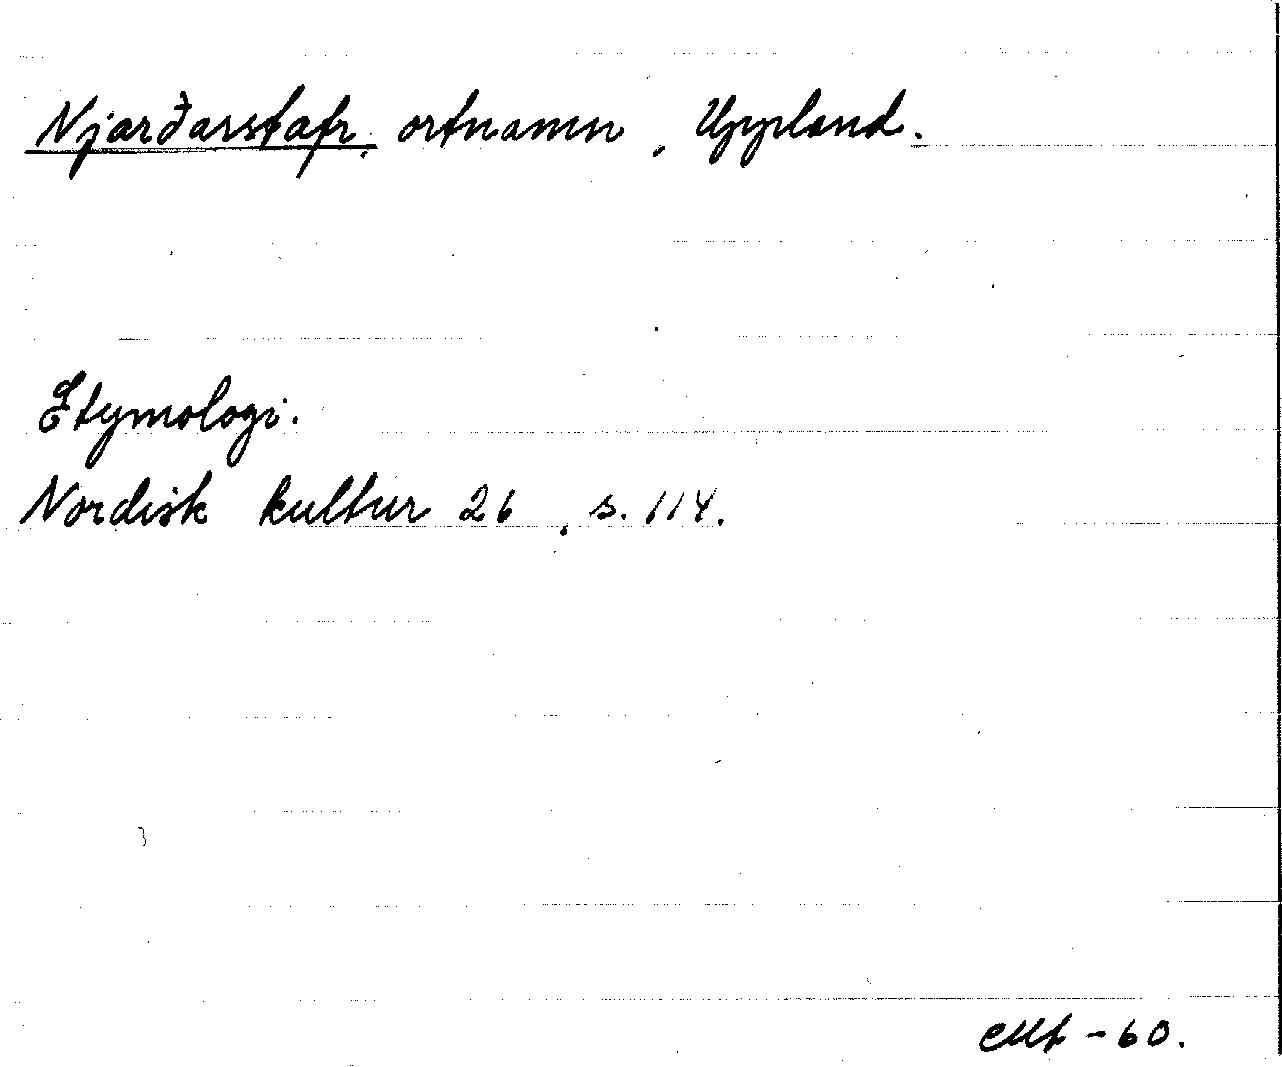 Njarðarstafr, ortnamn, Uppland.
Etymologi.
Nordisk kultur 26, s. 114.
-60.